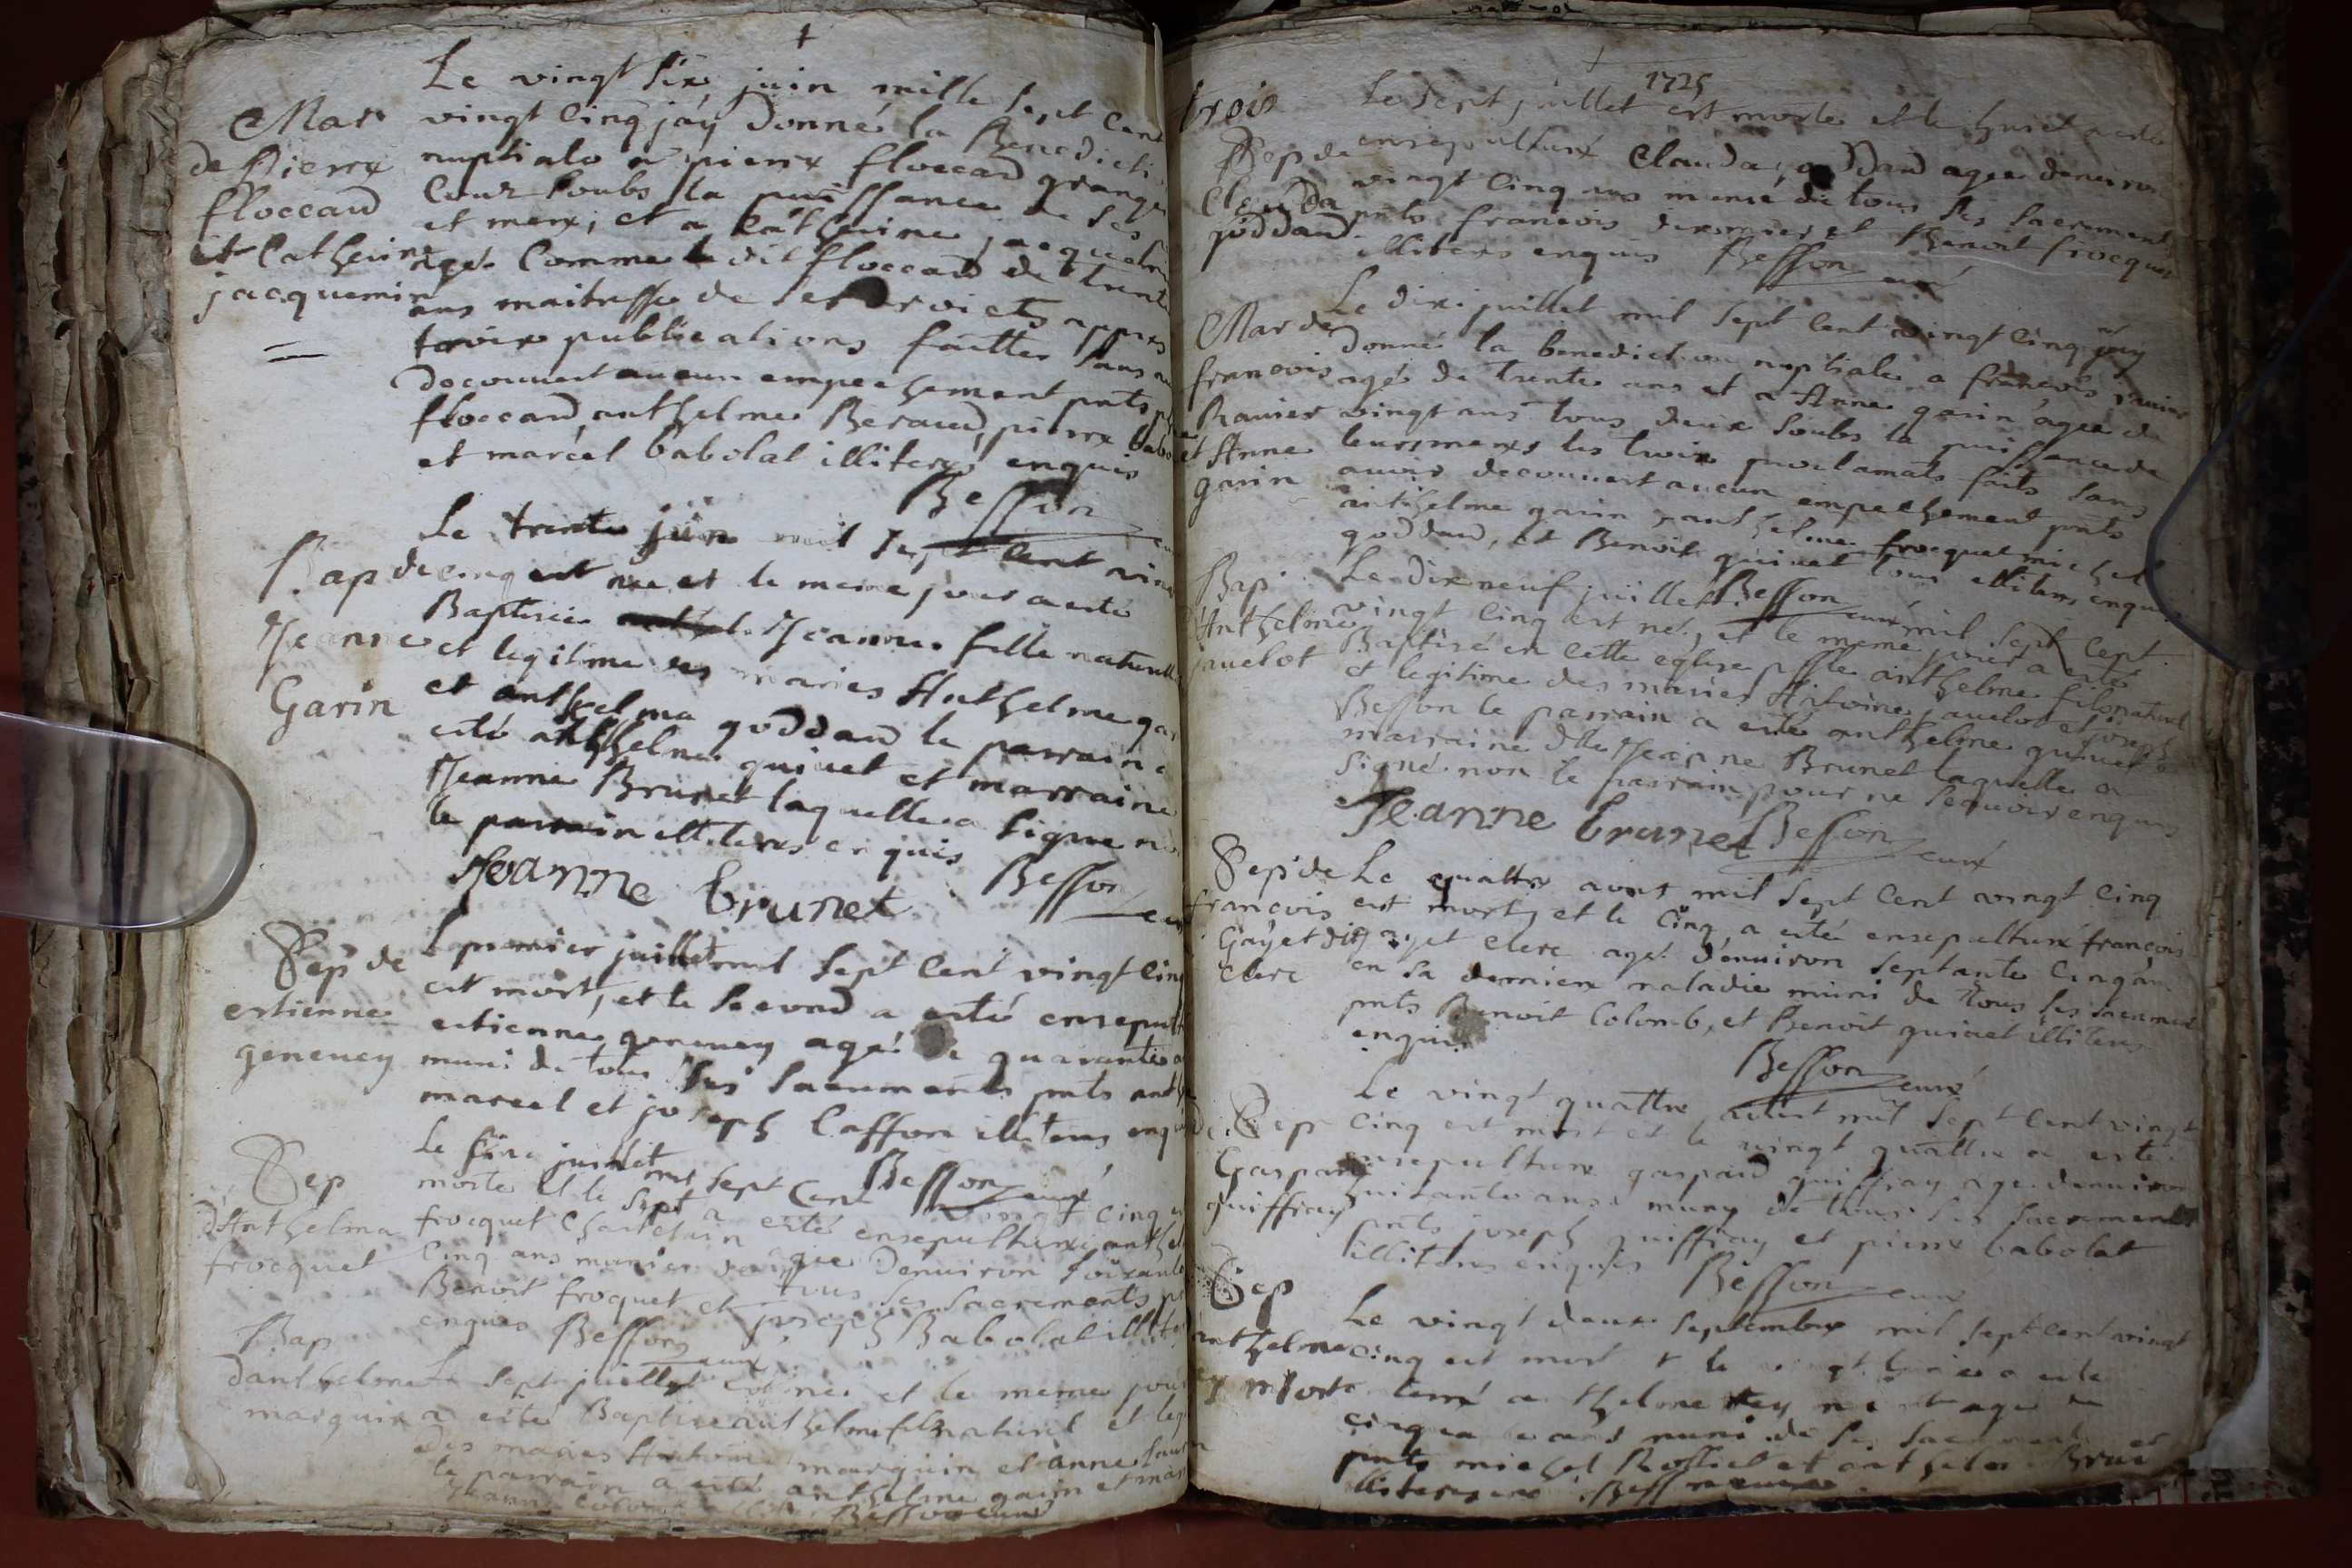 Le vingt six juin mille sept cent
Mar vingt cinq jay donné la Benedicti
de Pierre nuptiale a pierre floccard granger
floccard Cour soubs la puissance de ses
et Catherine et mere, et a Catherine jacquemin
jacquemin agés Comme le dit floccard de trente
ans maitresse de ses droicts appres
trois publications faittes sans
decouvert aucun empechement pnts
floccard, anthelme Beraud, pierre babo
et marcel babolat illiteres enquis
Besson
Le trente juin mil sept cent vin
Bap de cinq est née et le meme jour a esté
Baptisée Jeanne fille naturelle
Jeanne et legitime des mariés Anthelme ga
Garin et anthelma goddard le parrain a
esté anthelme quinet et marraine
Jeanne Brunet laquelle a signé n
le parrain illiteres enquis
Jeanne brunet Besson
Sep de Le premier juillet mil sept cent vingt cinq
est mort, et le second a esté ensepult
estienne estienne geneney agé de quarante
geneney muni de tous ses sacrements pnts ant
marcel et joseph Caffon illiteres enq
Le six juillet mil sept cent vingt cinq
Sep morte et le sept a esté ensepulturé anthel
Besson curé
d'Anthelma frocquet Chastelain agée denuiron soixante
frocquet Cinq ans munie de tous ses sacrements
Benoit froquet et joseph Babolat illite
enquis Besson curé
Bap
danthelme Le sept juillet est né et le meme jour
marquin a esté Baptisé anthelme fils naturel et leg
des mariés Antoine marquin et anne
le parrain a esté anthelme garin et mar
Besson curé
1725
trois Le sept juillet est morte et le huict a esté
Sep de ensepulturé Clauda goddard agée denuiron
Clauda vingt cinq ans munie de tous ses sacrements
goddard pnts francois et Benoit frocquet
illiteres enquis Besson curé
Le dix juillet mil sept cent vingt cinq jay
Mar de donné la benediction nuptiale a françois ravier
francois agé de trente ans et a Anne garin agée de
Ravier vingt ans tous deux soubs la puissance de
et Anne leurs meres les trois proclamats faits sans
garin auoir decouuert aucun empechement pnts
anthelme garin, anthelme frocquet michel
goddard, et Benoit quinet tous illiteres enquis
Besson curé
Bap Le dix neuf juillet mil sept cent
Anthelme vingt cinq est né, et le meme jour a esté
jauelot Baptisé en cette eglise anthelme fils naturel
et legitime des mariés Antoine jauelot et joseph
Besson le parrain a esté anthelme quinet
marraine dlle Jeanne Brunet laquelle a
signé non le parrain pour ne sçauoir enquis
Jeanne brunet Besson curé
Sep de Le quattre aout mil sept cent vingt cinq
francois est mort, et le cinq a esté ensepulturé françois
Gayet dit gayet clerc agé d'enuiron septante cinq ans
clerc en sa derniere maladie muni de tous ses sacrements
pnts Benoit Colomb, et Benoit quinet illiteres
enquis
Besson curé
Le vingt quattre aoust mil sept cent vingt
Sep cinq est mort et le vingt quattre a esté
Gaspard ensepulturé gaspard guiffray agé denuiron
guiffray huitante ans muny de tous ses sacrements
pnts joseph guiffray et pierre babolat
illiteres enquis Besson curé
Sep Le vingt deux septembre mil sept cent vingt
anthelme cinq est mort et le vingt a esté
anthelme agé de
cinquante ans muni de ses sacrements
pnts michel Rossiet et anthelme Brun
illiteres Besson curé